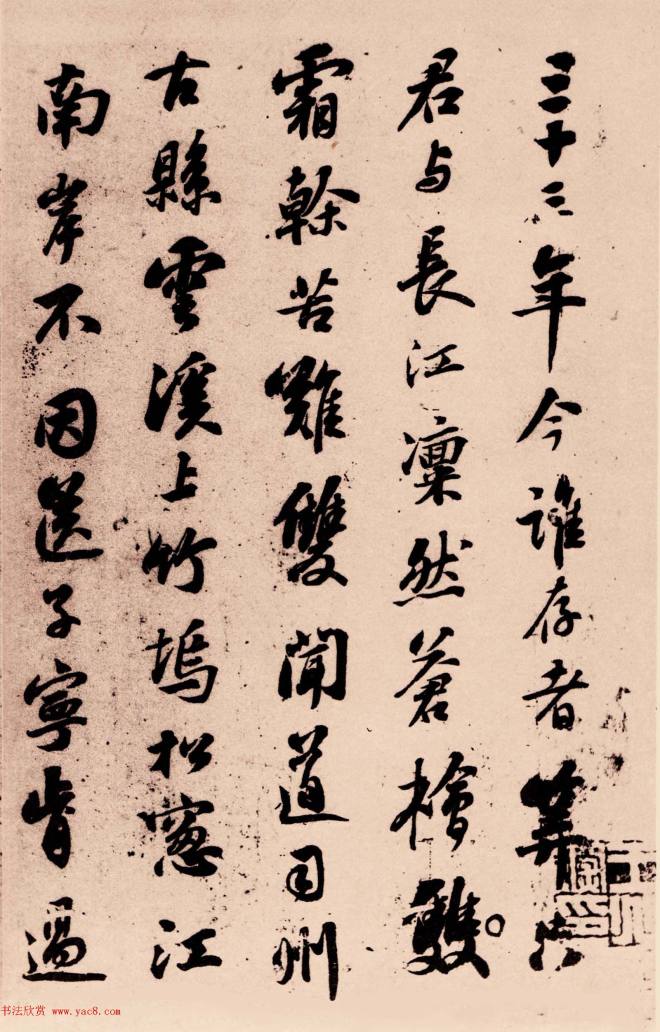 三十三年今誰存者算只
君与長江凜然蒼檜雙
霜榦苦難雙聞道司州
古縣雲溪上竹塢松窻江
南岸不因送子寧肯過
书法欣赏 www.yac8.com